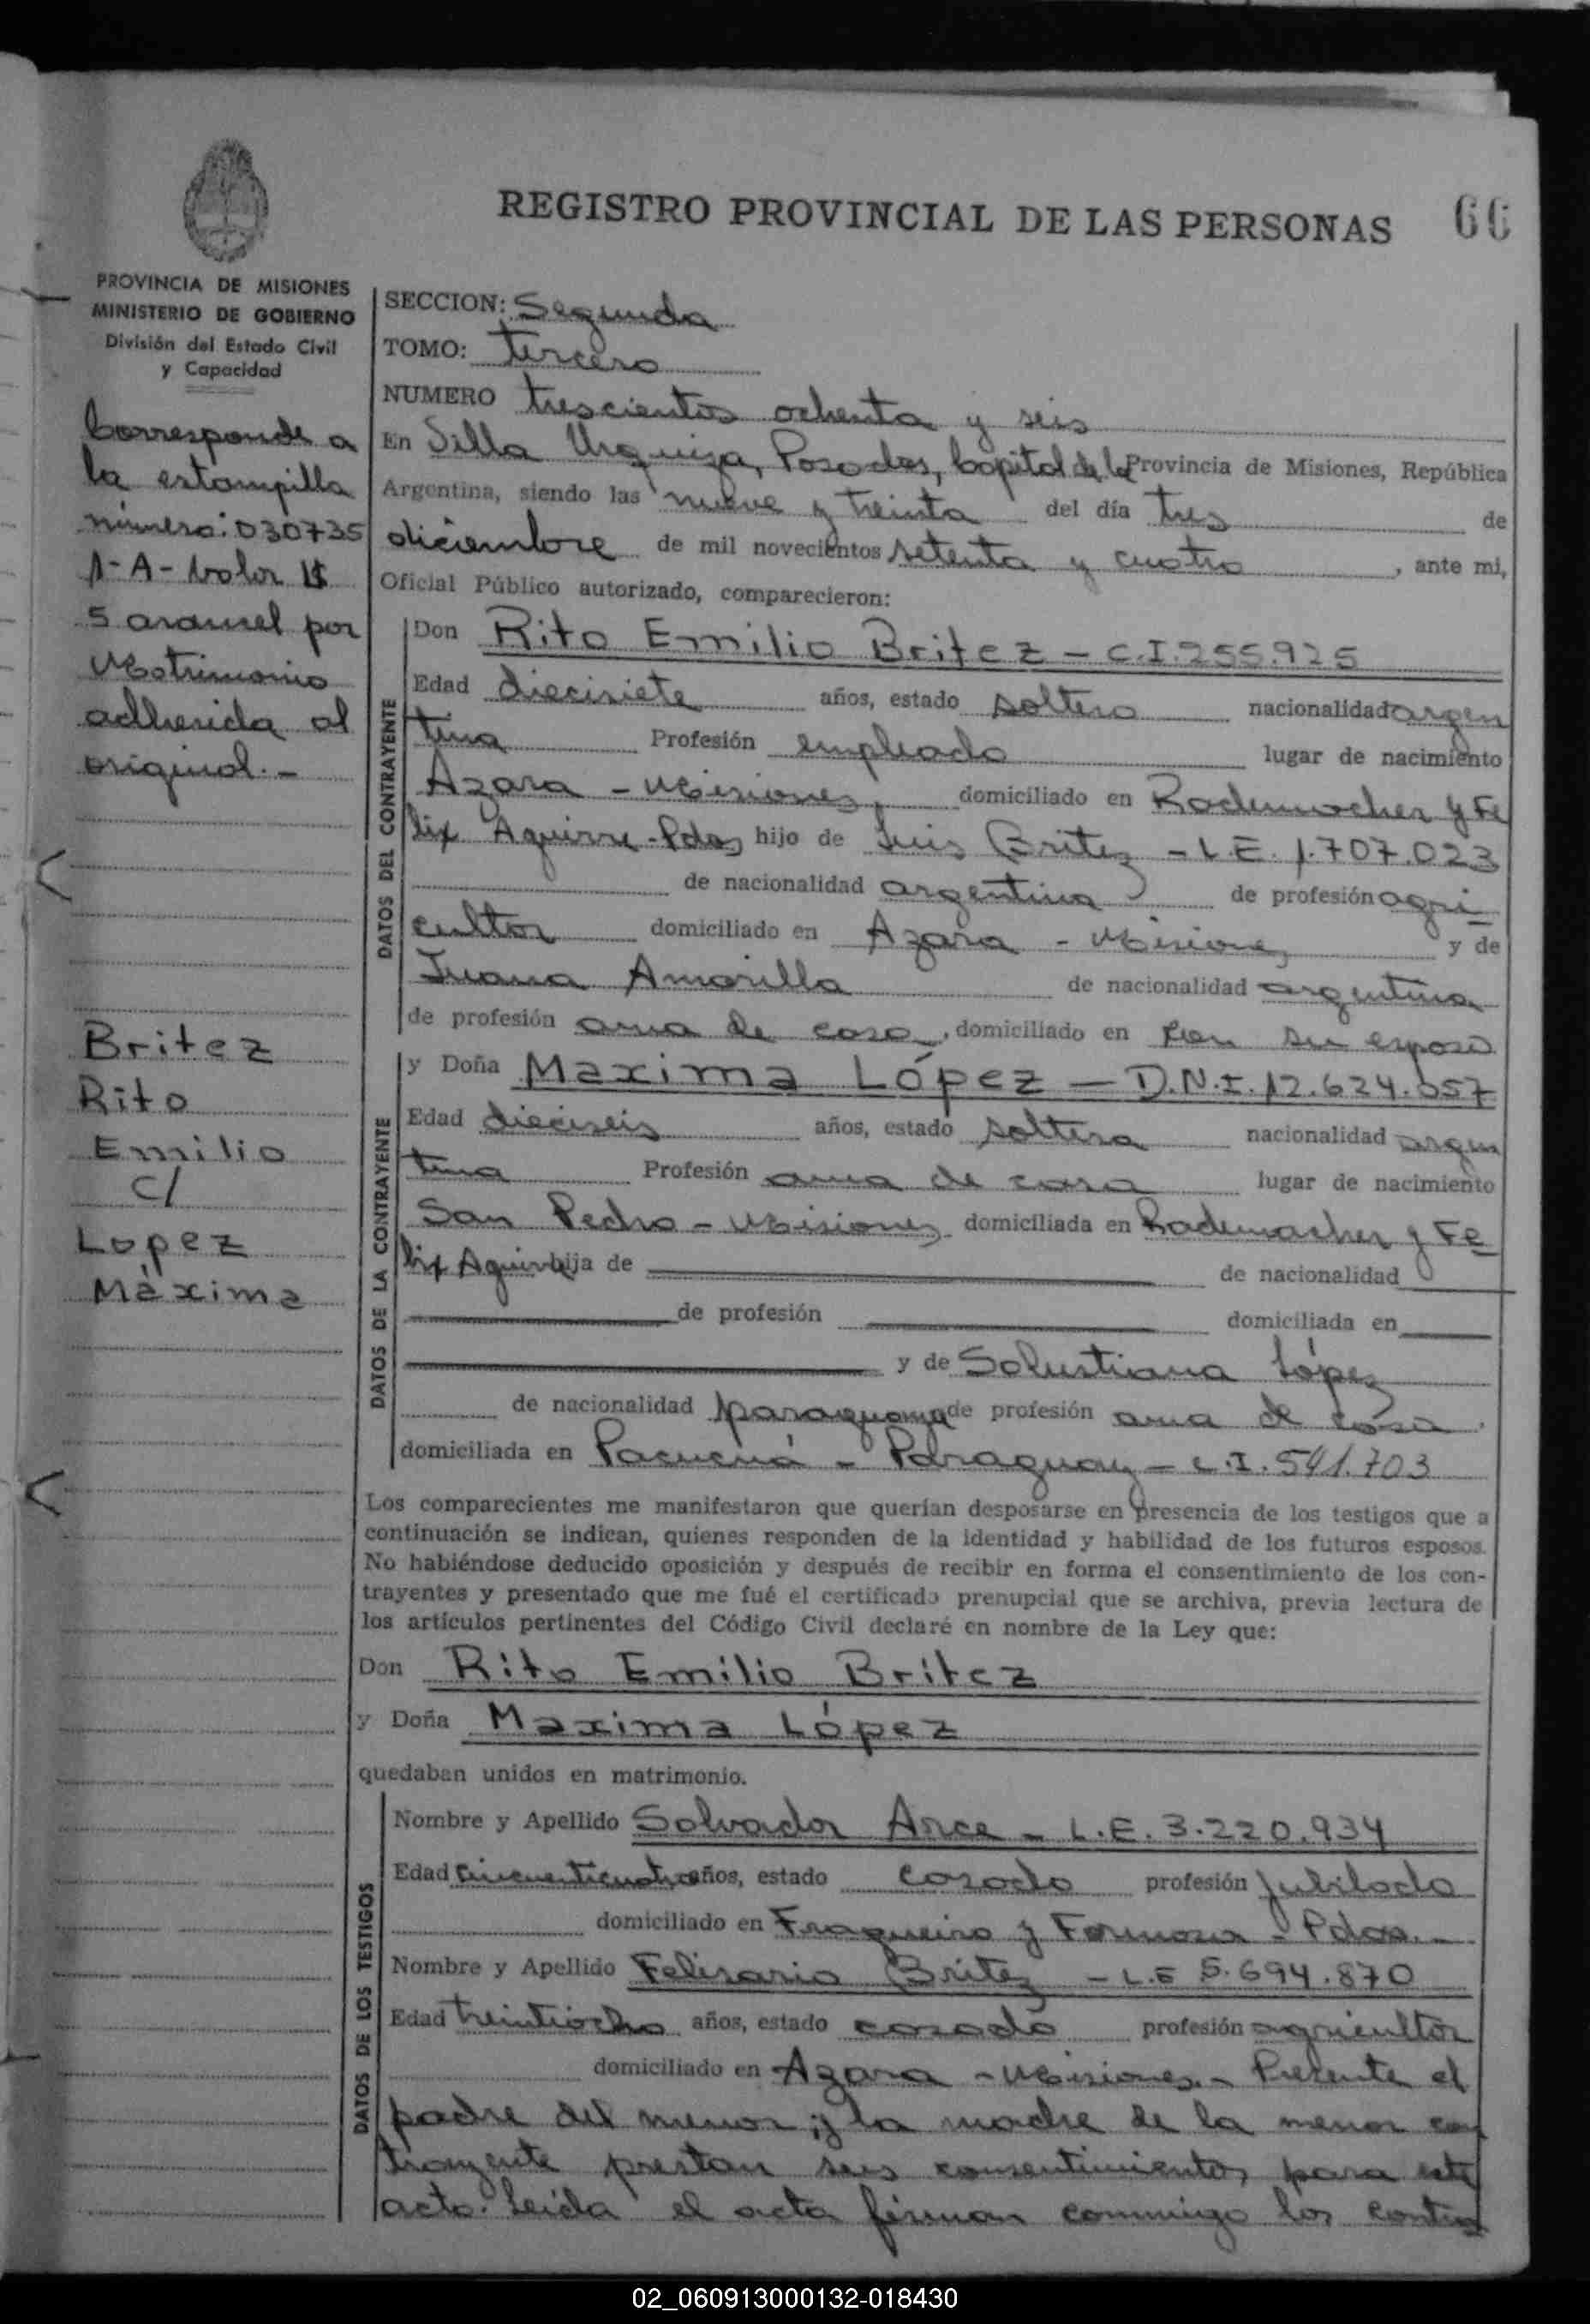 REGISTRO PROVINCIAL DE LAS PERSONAS 66
PROVINCIA DE MISIONES
MINISTERIO DE GOBIERNO
División del Estado Civil
y Capacidad
Corresponde a
la estampilla
número: 030735
1-A- Valor $
5 arancel por
Matrimonio
adherida al
original.-
Britez
Rito
Emilio
C/
Lopez
Máxima
SECCION: Segunda
TOMO: tercero
NUMERO trescientos ochenta y seis
En Villa Urquiza, Posadas, Capital de la Provincia de Misiones, República
Argentina, siendo las nueve y treinta del día tres de
diciembre de mil novecientos setenta y cuatro, ante mi,
Oficial Público autorizado, comparecieron:
DATOS DEL CONTRAYENTE
Don Rito Emilio Britez - C.I.255.925
Edad diecisiete años, estado soltero nacionalidad argen
tina Profesión empleado lugar de nacimiento
Azara - Misiones, domiciliado en Rademacher y Fe
lix Aguirre-Pdas, hijo de Luis Britez - L.E. 1.707.023
de nacionalidad argentina de profesión agri
cultor domiciliado en Azara - Misiones, y de
Juana Amarilla de nacionalidad argentina
de profesión ama de casa, domiciliado en con su esposo
DATOS DE LA CONTRAYENTE
y Doña Maxima López - D.N.I. 12.624.057
Edad dieciseis años, estado soltera nacionalidad argen
tina Profesión ama de casa lugar de nacimiento
San Pedro - Misiones, domiciliada en Rademacher y Fe
lix Aguirre hija de de nacionalidad
de profesión domiciliada en
y de Salustiana López
de nacionalidad paraguaya de profesión ama de casa
domiciliada en Pacucuá - Paraguay - C.I. 541.703
Los comparecientes me manifestaron que querían desposarse en presencia de los testigos que a
continuación se indican, quienes responden de la identidad y habilidad de los futuros esposos.
No habiéndose deducido oposición y después de recibir en forma el consentimiento de los con-
trayentes y presentado que me fué el certificado prenupcial que se archiva, previa lectura de
los artículos pertinentes del Código Civil declaré en nombre de la Ley que:
Don Rito Emilio Britez
y Doña Maxima López
quedaban unidos en matrimonio.
DATOS DE LOS TESTIGOS
Nombre y Apellido Salvador Arce - L.E. 3.220.934
Edad cincuenticuatro años, estado casado profesión jubilado
domiciliado en Fragueiro y Formosa - Pdas.-
Nombre y Apellido Felisario Britez - L.E 5.694.870
Edad treintiocho años, estado casado profesión agricultor
domiciliado en Azara - Misiones.- Presente el
padre del menor; y la madre de la menor con
trayente prestan sus consentimientos para este
acto. Leída el acta firman conmigo los contra
02_060913000132-018430